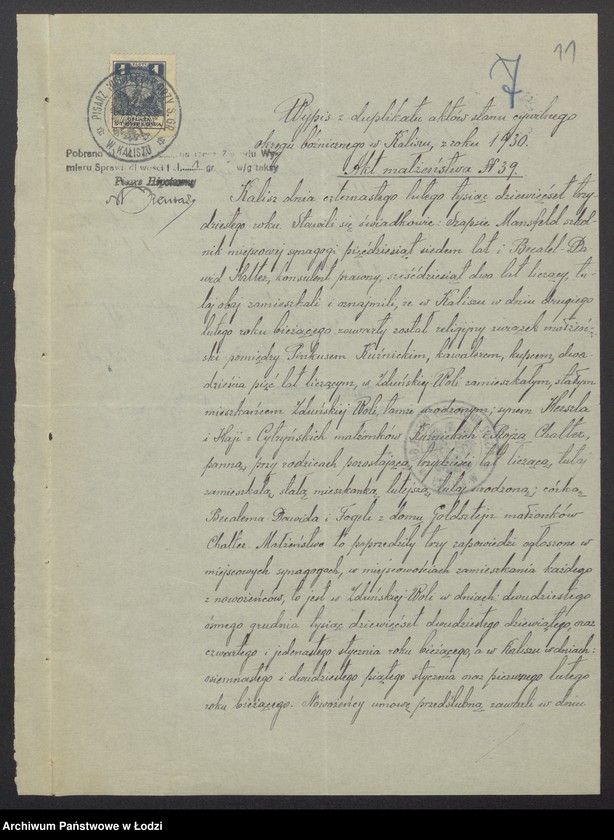 7 11
Wypis z duplikatu aktów stanu cywilnego
okręgu bóżniczego w Kaliszu, z roku 1930.
Akt małżeństwa N 39.
PISARZ W KALISZU
1
OPŁATA STEMPLOWA
Pobrano
mieru Sprawiedliwości 1 zł. gr. wg taksy
Pisarz Hipoteczny
Kalisz dnia czternastego lutego tysiąc dziewięćset trzy-
dziestego roku. Stawili się świadkowie: Szapsie Mansfeld szkol-
nik miejscowej synagogi pięćdziesiąt siedem lat i Becalel-Da-
wid Halter, konsulent prawny, sześćdziesiąt dwa lat liczący, tu-
taj obaj zamieszkali i oznajmili, że w Kaliszu w dniu drugiego
lutego roku bieżącego zawarty został religijny związek małżeń-
ski pomiędzy Pinkusem Kuźnickim, kawalerem, kupcem, dwa-
dzieścia pięć lat liczącym, w Zduńskiej-Woli zamieszkałym, stałym
mieszkańcem Zduńskiej-Woli, tamże urodzonym; synem Herszla
i Haji z Cytryńskich małżonków Kuźnickich a Rojzą Chalter,
panną, przy rodzicach pozostającą, trzydzieści lat liczącą, tutaj
zamieszkałą, stałą mieszkanką tutejszą, tutaj urodzoną; córką
Becalema Dawida i Fogeli z domu Goldsztejn małżonków
Chalter. Małżeństwo to poprzedziły trzy zapowiedzi ogłoszone w
miejscowych synagogach, w miejscowościach zamieszkania każdego
z nowożeńców, to jest w Zduńskiej-Woli w dniach: dwudziestego
ósmego grudnia tysiąc dziewięćset dwudziestego dziewiątego, oraz
czwartego i jedenastego stycznia roku bieżącego, a w Kaliszu w dniach:
osiemnastego i dwudziestego piątego stycznia oraz pierwszego lutego
roku bieżącego. Nowożeńcy umowę przedślubną zawarli w dniu
Archiwum Państwowe w Łodzi